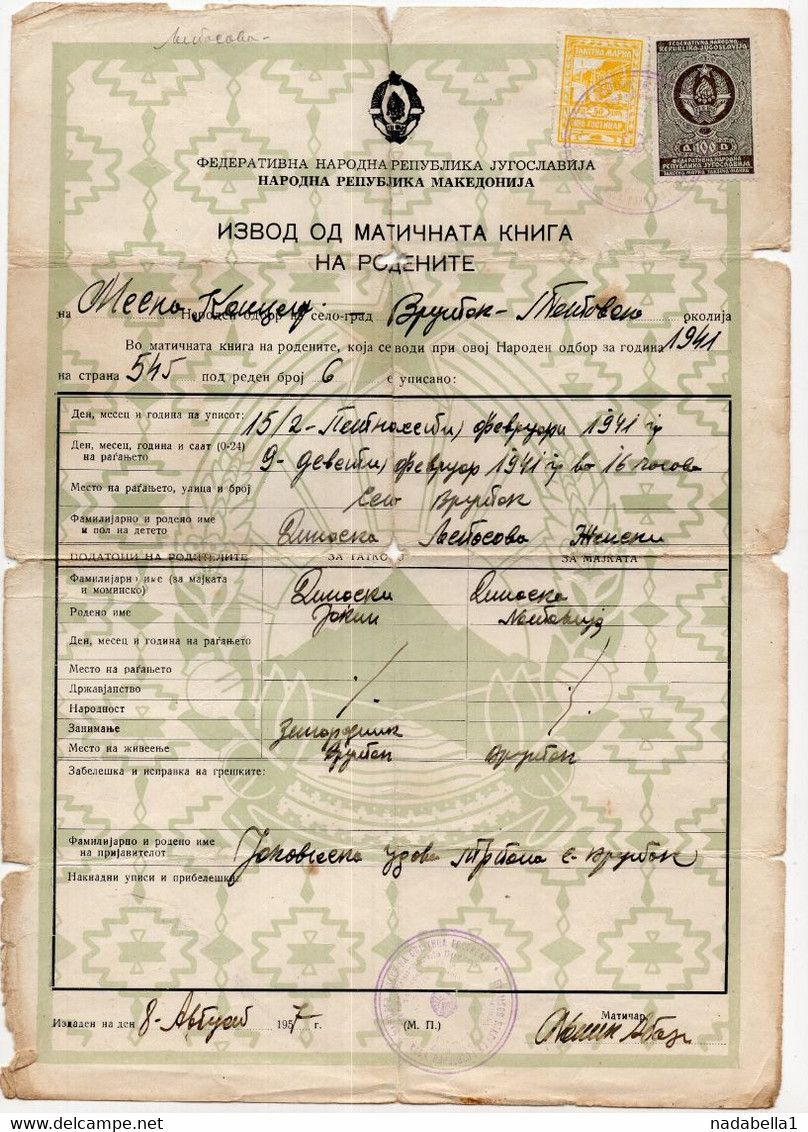 ТАКСЕНА МАРКА
НРО ГОСТИВАР
FEDERATIVNA NARODNA
REPUBLIKA JUGOSLAVIJA
Д 100 D
ФЕДЕРАТИВНА НАРОДНА
РЕПУБЛИКА ЈУГОСЛАВИЈА
ФЕДЕРАТИВНА НАРОДНА РЕПУБЛИКА ЈУГОСЛАВИЈА
НАРОДНА РЕПУБЛИКА МАКЕДОНИЈА
ИЗВОД ОД МАТИЧНАТА КНИГА
НА РОДЕНИТЕ
на Месна Канцел. Народен одбор на село-град Вруток - Тетовска околија
Во матичната книга на родените, која се води при овој Народен одбор за година 1941
на страна 545 под реден број 6 е уписано:
Ден, месец и година на уписот: 15/2 - Петнаесети февруари 1941 г
Ден, месец, година и саат (0-24)
на раѓањето 9 - девети февруар 1941 г во 16 часова
Место на раѓањето, улица и број Село Вруток
Фамилијарно и родено име
и пол на детето Диноска Женски
ПОДАТОЦИ НА РОДИТЕЛИТЕ ЗА ТАТКОТО ЗА МАЈКАТА
Фамилијарно име (за мајката
и моминско) Диноски Диноска
Родено име Јоким
Ден, месец и година на раѓањето
Место на раѓањето
Државјанство
Народност
Занимање Земјоделник
Место на живеење Вруток Вруток
Забелешка и исправка на грешките:
Фамилијарно и родено име
на пријавителот Јаковеска удова с. Вруток
Накнадни уписи и прибелешки:
Издаден на ден 8 - Август 1957 г.
(М. П.)
Матичар
nadabella1